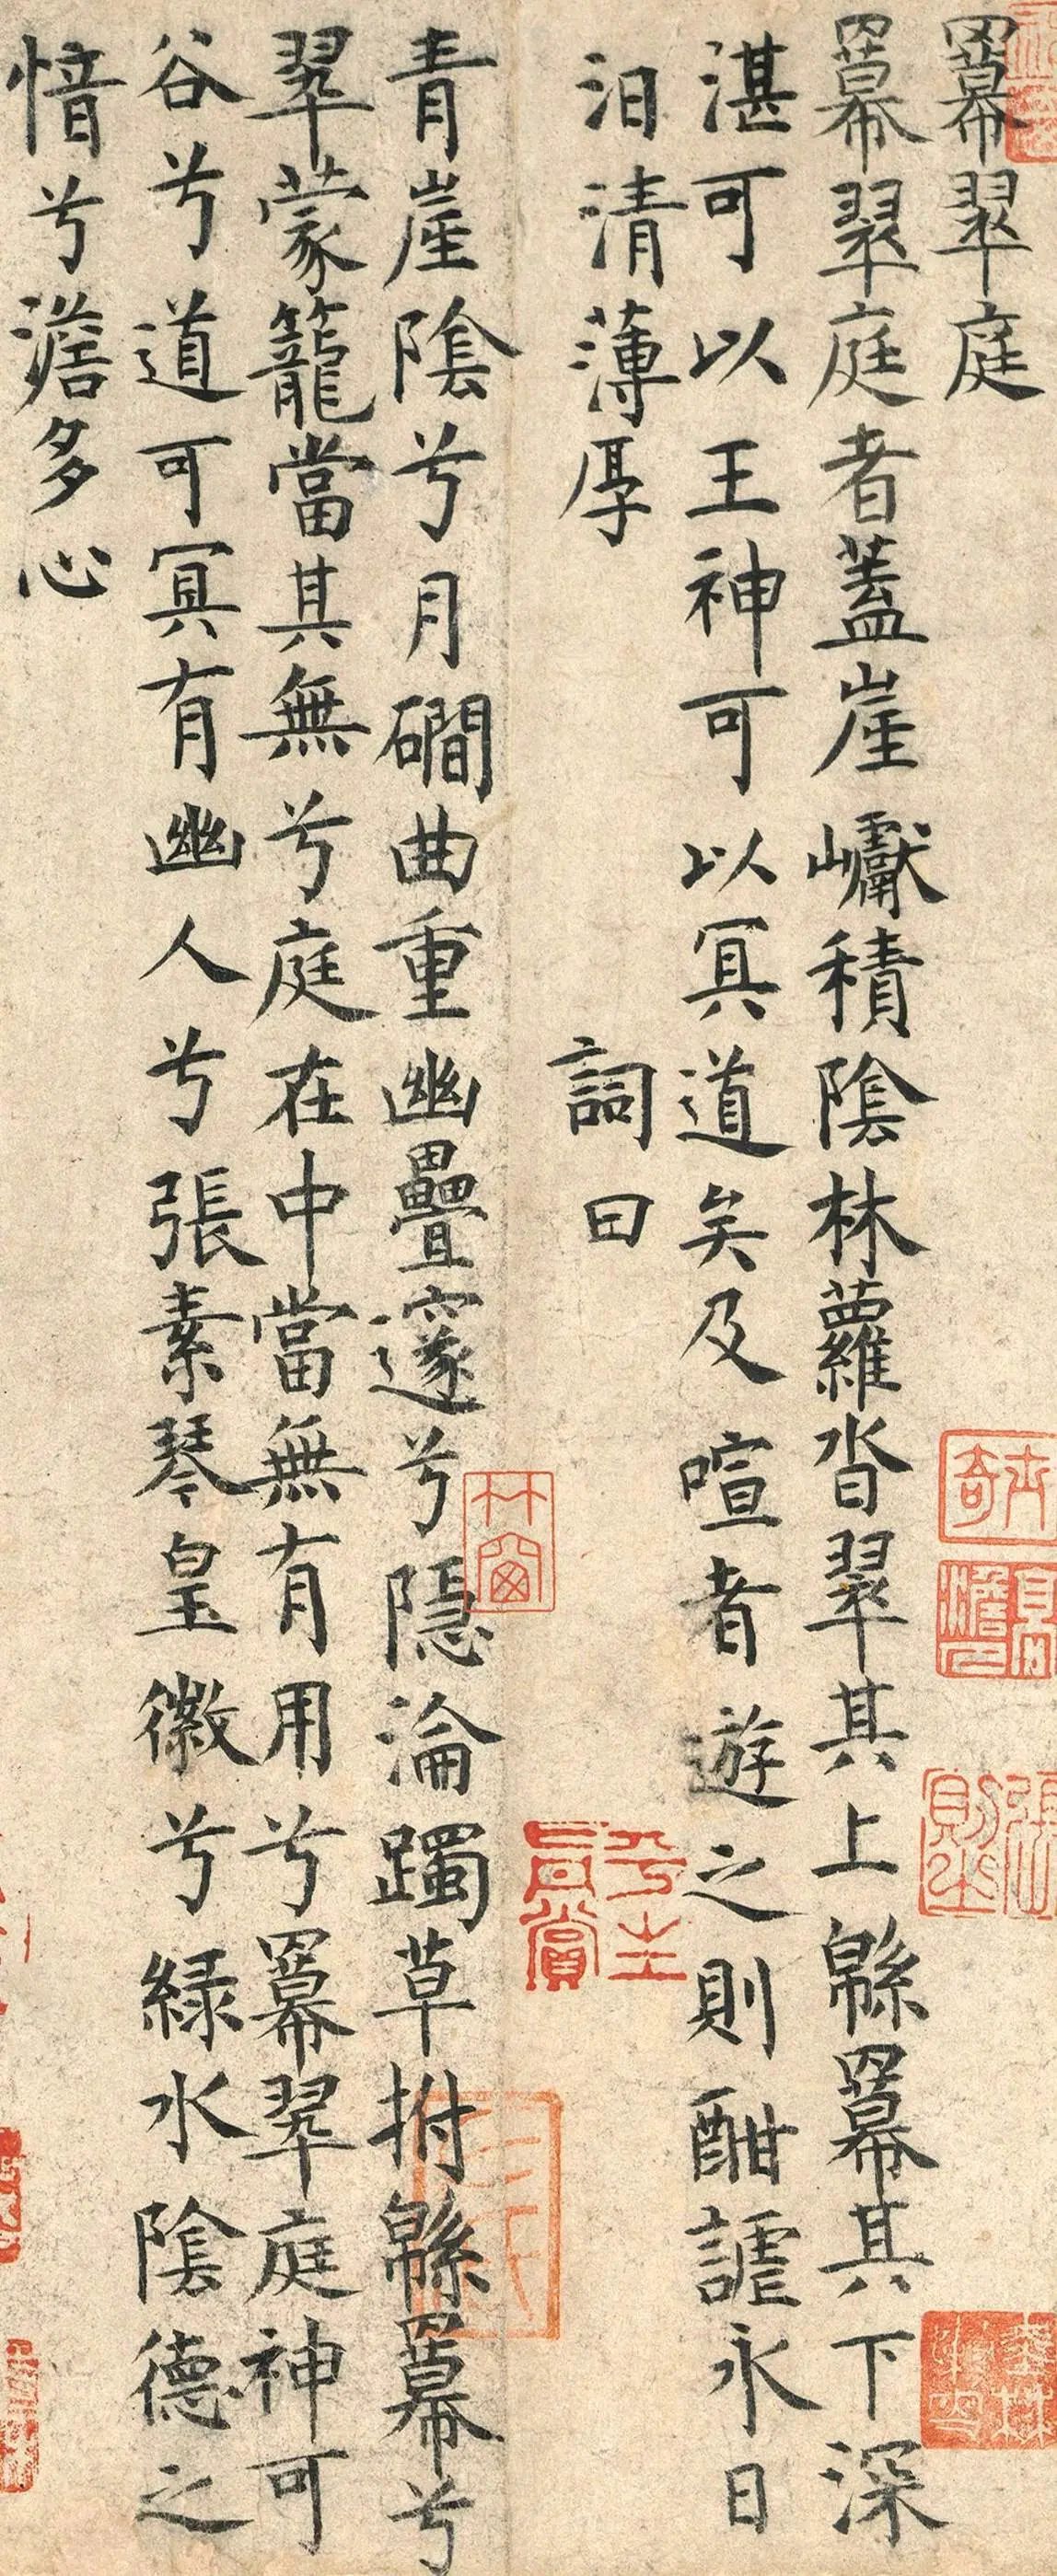 羃翠庭
羃翠庭者蓋崖巘積陰林蘿沓翠其上緜羃其下深
湛可以王神可以冥道矣及喧者遊之則酣謔永日
汨清薄厚
詞曰
青崖陰兮月磵曲重幽疊邃兮隱淪躅草拊緜羃兮
翠蒙籠當其無兮庭在中當無有用兮羃翠庭神可
谷兮道可冥有幽人兮張素琴皇徽兮綠水陰德之
愔兮澹多心